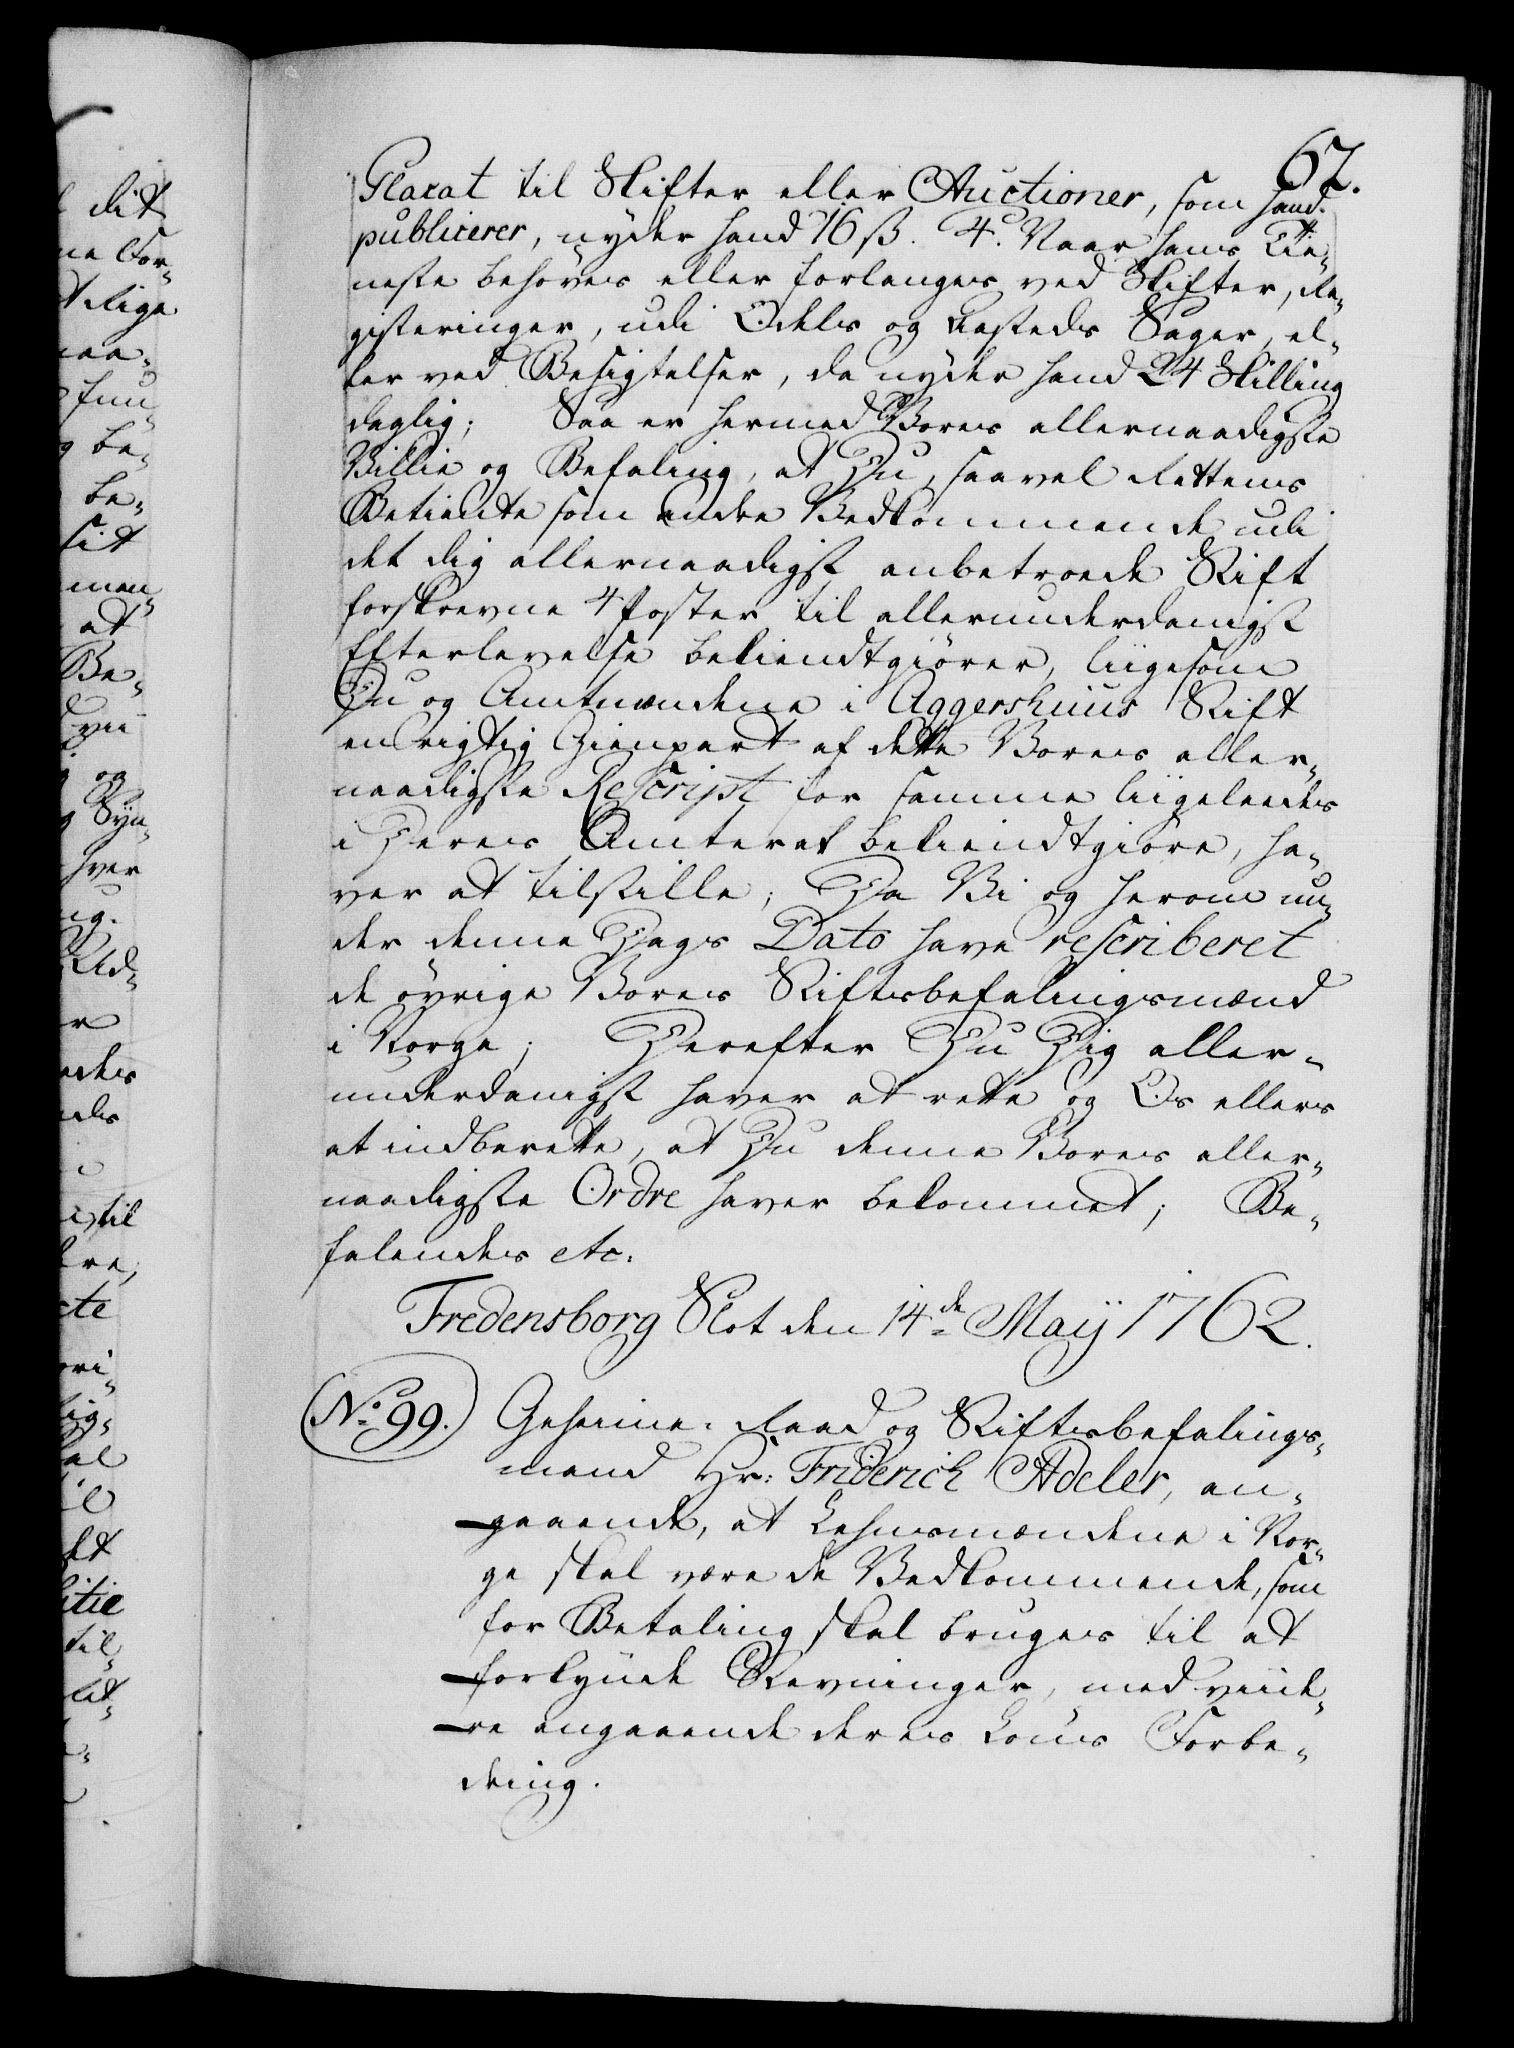 67.
Placat til Skifter eller Auctioner, som hand
publicerer, nyder hand 16 ß. 4. Naar hans Tie-
neste behøves eller forlanges ved Skifter, Re-
gisteringer, udi Odels og Aasteds Sager, el-
ler ved Besigtelser, da nyder hand 24 Skilling
daglig; Saa er hermed Vores allernaadigste
Villie og Befaling, at Du, saavel Rettens
Betiente som andre Vedkommende udi
det dig allernaadigst anbetroede Stift
forskrevne 4 Poster til allerunderdanigst
Efterlevelse bekiendtgiører, liigesom
Du og Amtmændene i Aggershuus Stift
en rigtig Gienpart af dette Vores aller-
naadigste Rescript for samme liigeledes
i Deres Amter at bekiendtgiøre, ha-
ver at tilstille; Da Vi og herom un-
der denne Dags Dato have rescriberet
de øvrige Vores Stiftsbefalingsmænd
i Norge; Derefter Du Dig aller-
underdanigst haver at rette og Os ellers
at indberette, at Du denne Vores aller-
naadigste Ordre haver bekommet; Be-
falendes etc:
Fredensborg Slot den 14de Maij 1762.
No. 99. Geheime-Raad og Stiftsbefalings-
mand Hr: Friderich Adeler, an-
gaaende, at Lehnsmændene i Nor-
ge skal være de Vedkommende, som
for Betaling skal bruges til at
forkynde Stevninger, med viide-
re angaaende deres Løns Forbe-
dring.
dit
ne For-
Lige
naa-
be-
be-
sit
men-
at
Be-
vii
og
Syn-
hver
ig.
Ud-
til
cte
ori-
lig-
al
il
et
itie
til-